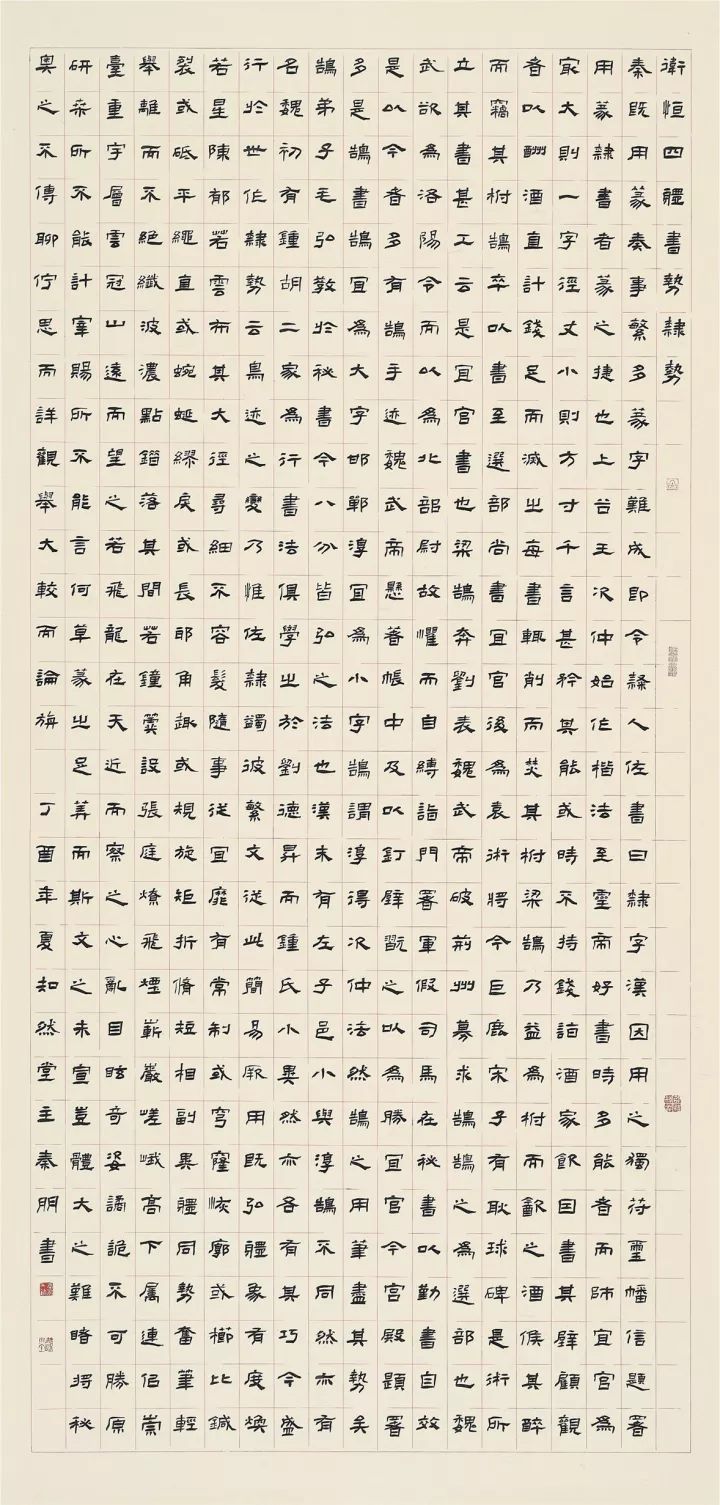 衛恒四體書勢隸勢
秦既用篆奏事繁多篆字難成即令隸人佐書曰隸字漢因用之獨符璽幡信題署
用篆隸書者篆之捷也上谷王次仲始作楷法至靈帝好書時多能者而師宜官為
最大則一字徑丈小則方寸千言甚矜其能或時不持錢詣酒家飲因書其壁顧觀
者以酬酒直計錢足而滅之每書輒削而焚其柎梁鵠乃益為柎而飲之酒候其醉
而竊其柎鵠卒以書至選部尚書宜官後為袁術將今巨鹿宋子有耿球碑是術所
立其書甚工云是宜官書也梁鵠奔劉表魏武帝破荊州募求鵠鵠之為選部也魏
武欲為洛陽令而以為北部尉故懼而自縛詣門署軍假司馬在秘書以勤書自效
是以今者多有鵠手迹魏武帝懸著帳中及以釘壁翫之以為勝宜官今宮殿題署
多是鵠書鵠宜為大字邯鄲淳宜為小字鵠謂淳得次仲法然鵠之用筆盡其勢矣
鵠弟子毛弘教於秘書今八分皆弘之法也漢末有左子邑小與淳鵠不同然亦有
名魏初有鍾胡二家為行書法俱學之於劉德昇而鍾氏小異然亦各有其巧今盛
行於世作隸勢云鳥迹之變乃惟佐隸蠲彼繁文從此簡易厥用既弘體象有度煥
若星陳郁若雲布其大徑尋細不容髮隨事從宜靡有常制或穹窿恢廓或櫛比鍼
裂或砥平繩直或蜿蜒繆戾或長邪角趣或規旋矩折脩短相副異體同勢奮筆輕
舉離而不絕纖波濃點錯落其間若鐘簴設張庭燎飛煙嶄嚴嵯峨高下属連似崇
臺重字層雲冠山遠而望之若飛龍在天近而察之心亂目眩奇姿譎詭不可勝原
研桑所不能計宰賜所不能言何草篆之足算而斯文之未宣豈體大之難睹將秘
奧之不傳聊佇思而詳觀舉大較而論旃 丁酉年夏知然堂主秦朋書